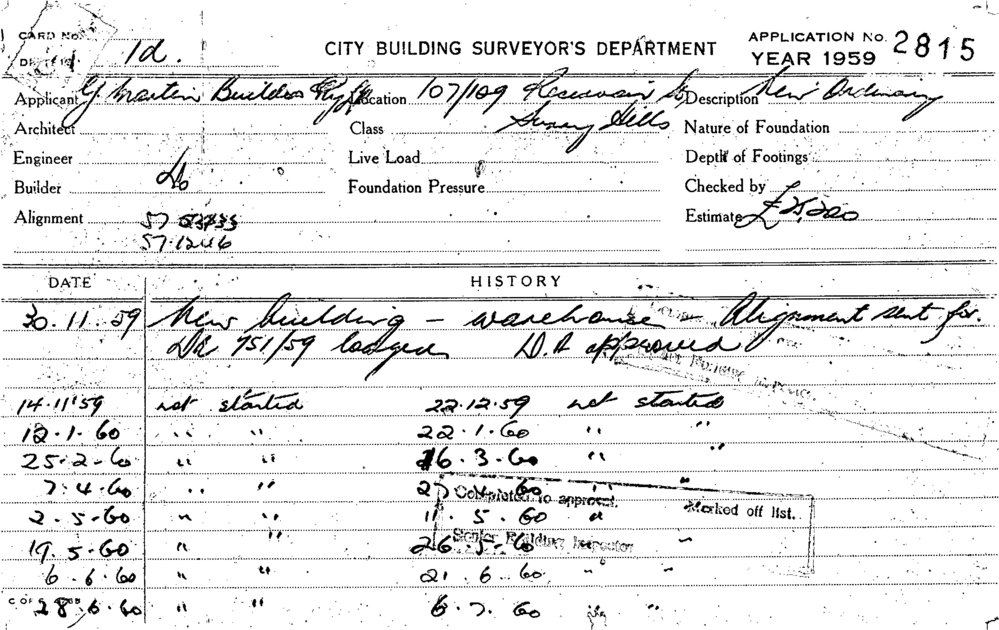 CARD No.
1d.
CITY BUILDING SURVEYOR'S DEPARTMENT
APPLICATION No. 2815
YEAR 1959
Applicant G Martin Builders Pty Ltd
Location 107/109 Reservoir St
Description New Ordinary
Architect
Class Surry Hills
Nature of Foundation
Engineer
Live Load
Depth of Footings
Builder Do
Foundation Pressure
Checked by
Alignment 57
Estimate £25,200
57.1246
DATE HISTORY
30.11.59 New building - warehouse - Alignment sent for.
DA 751/59 lodged D.A approved
14.11.59 not started 22.12.59 not started
12.1.60 " " 22.1.60 " "
25.2.60 " " 16.3.60 " "
7.4.60 " " 27.4.60 " "
Completed to approval. Marked off list.
2.5.60 " " 11.5.60 "
Senior Building Inspector
19.5.60 " " 26.5.60 "
6.6.60 " " 21.6.60 " "
28.6.60 " " 6.7.60 "